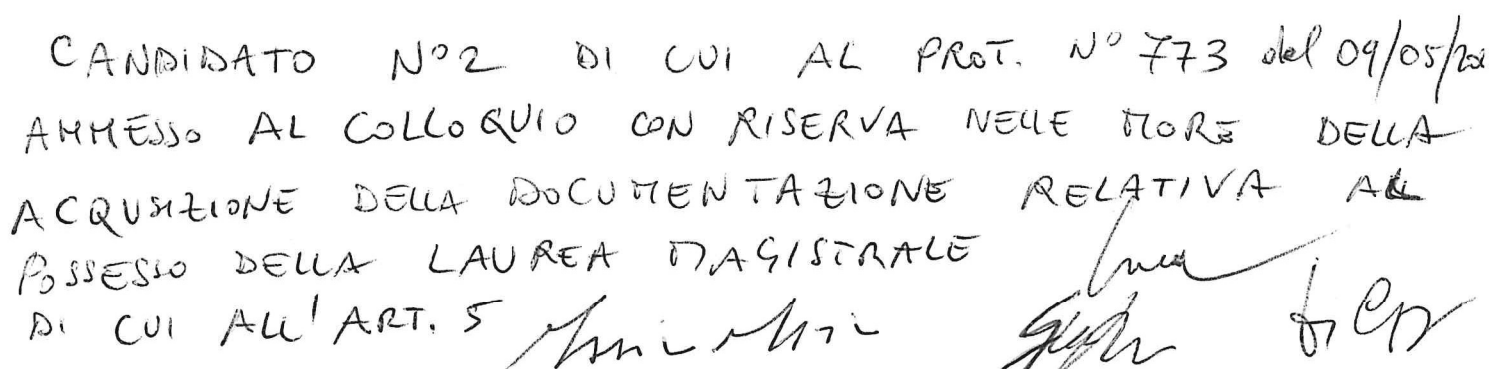 CANDIDATO N°2 DI CUI AL PROT. N° 773 del 09/05/
AMMESSO AL COLLOQUIO CON RISERVA NELLE MORE DELLA
ACQUSIZIONE DELLA DOCUMENTAZIONE RELATIVA AL
POSSESSO DELLA LAUREA MAGISTRALE
DI CUI ALL'ART. 5